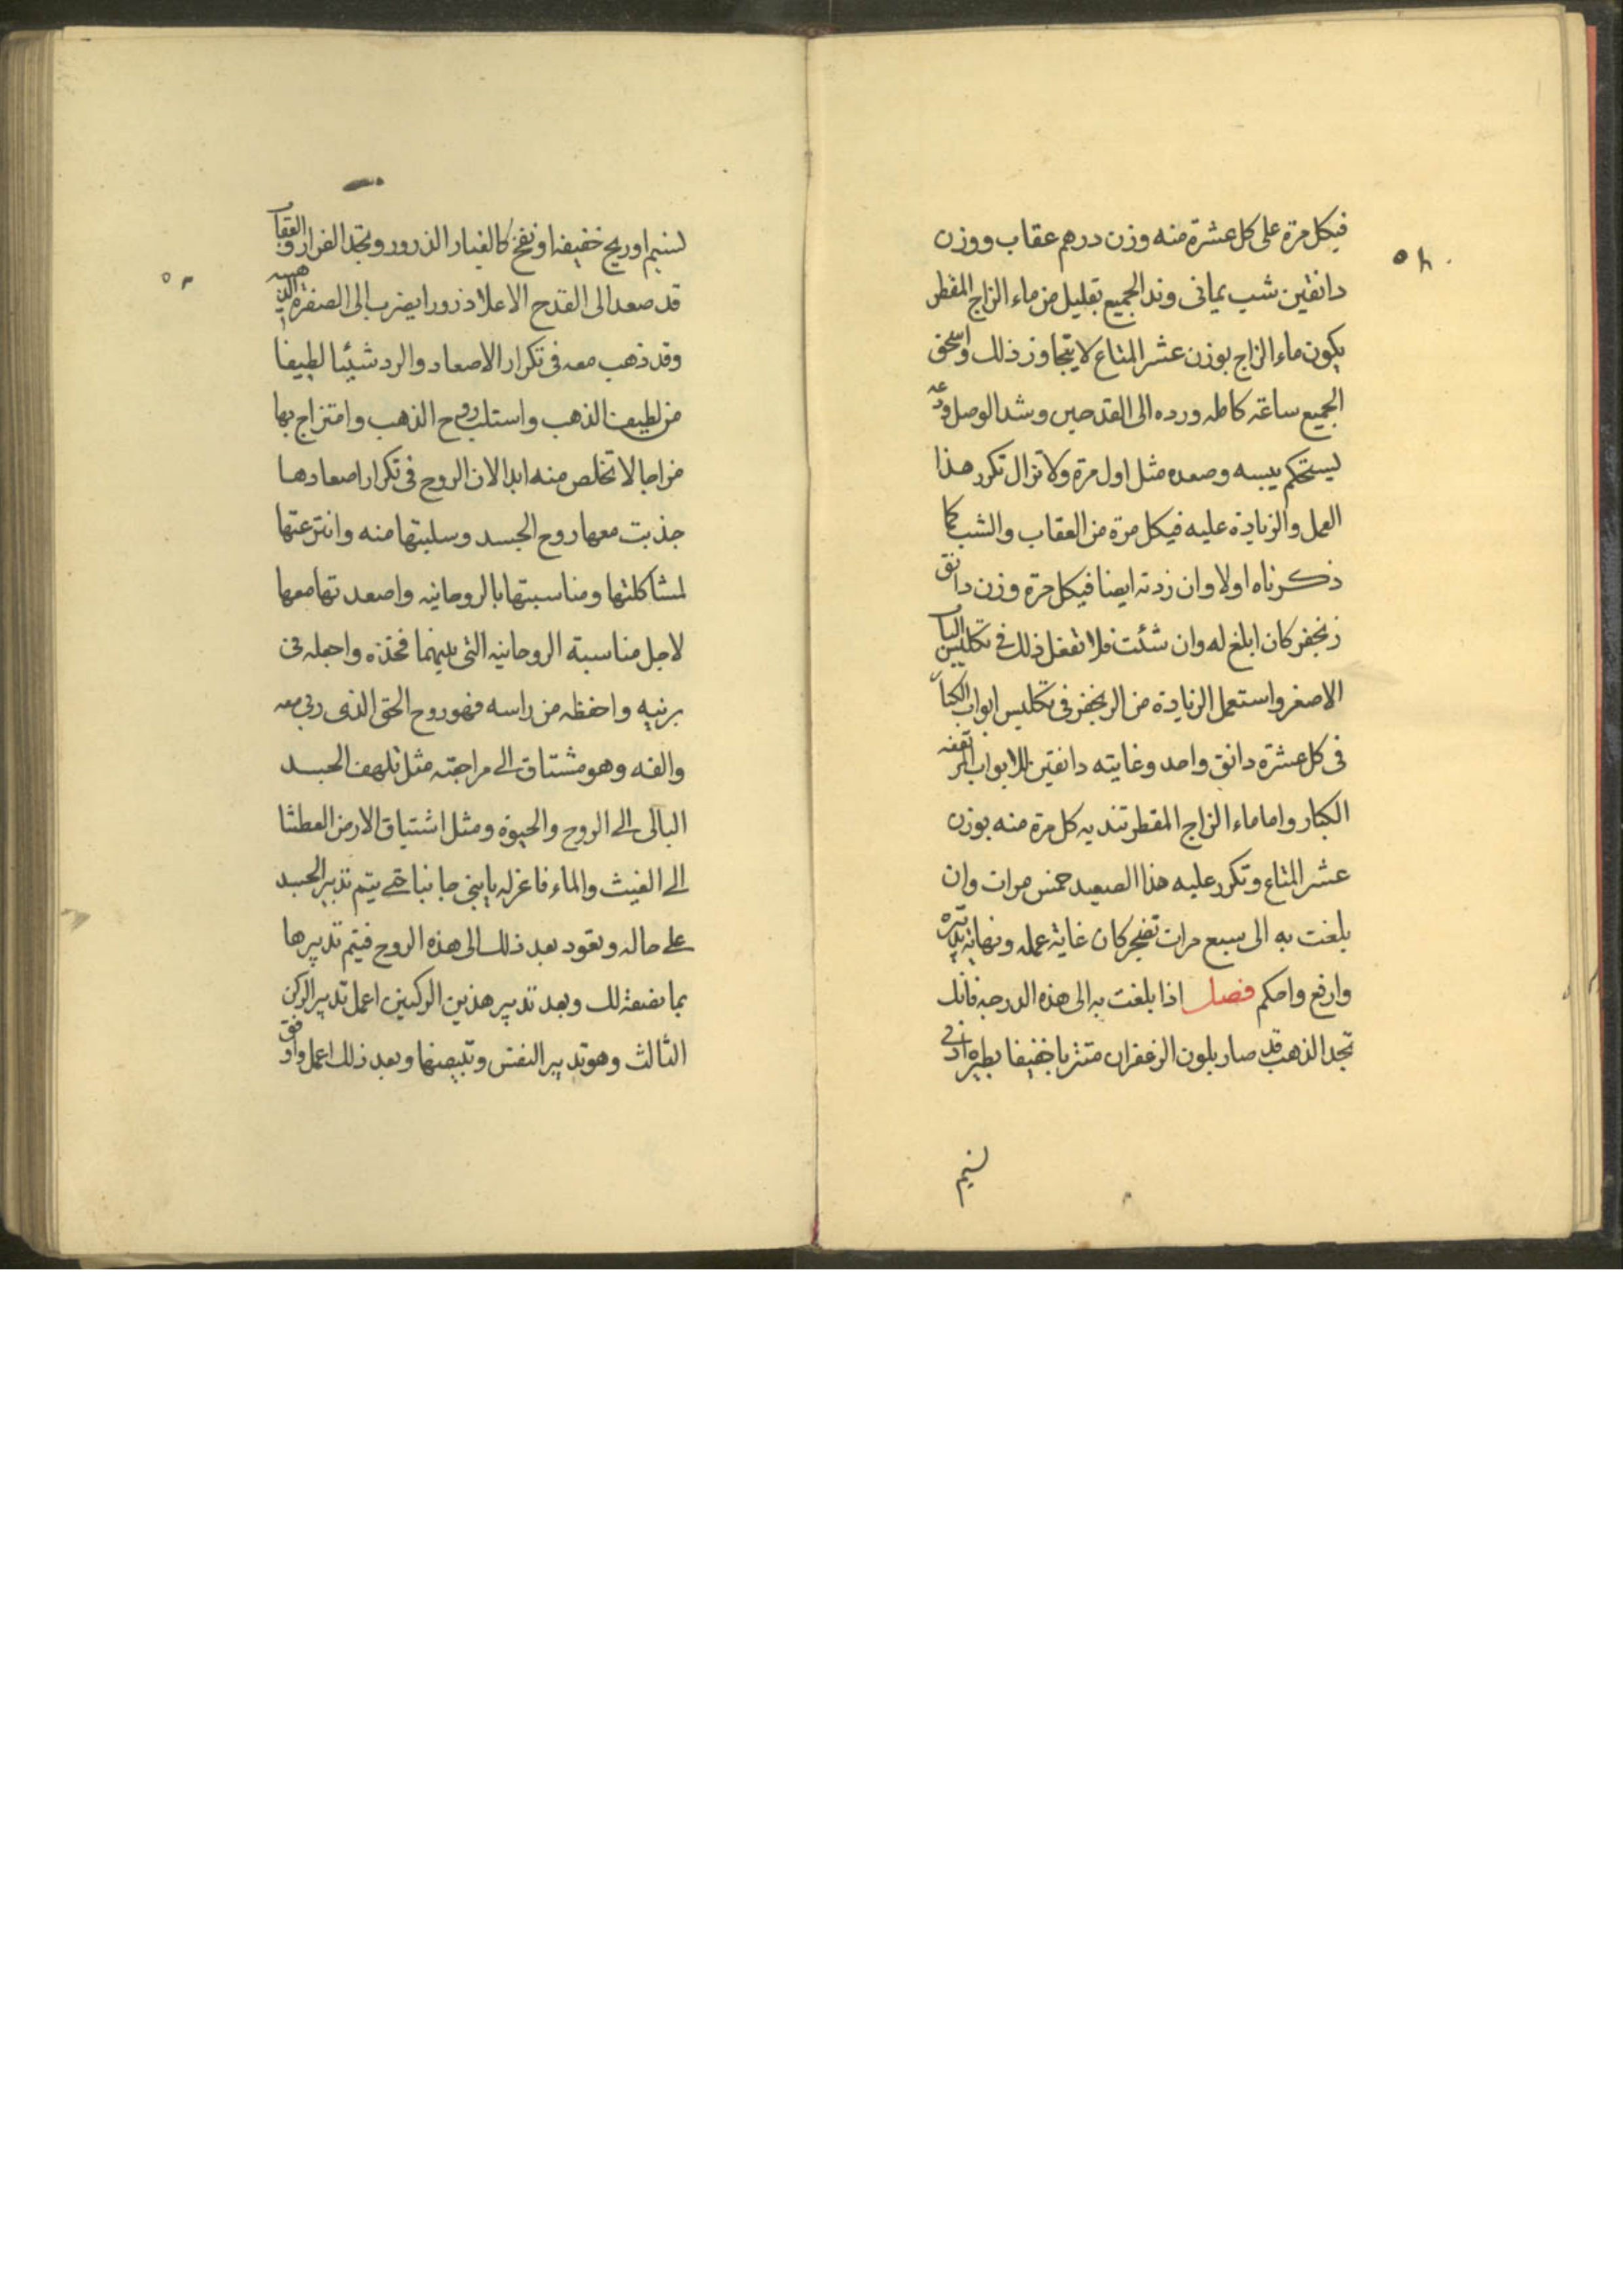 فيكل مرة على كل عشرة منه وزن درهم عقاب ووزن
دانقين شب يمانى وند الجميع بقليل من ماء الزاج المقطر
يكون ماء الزاج بوزن عشر المتاع لا يتجاوز ذلك واسحق
الجميع ساعة كاملة ورده الى القدحين وشد الوصل ودعه
ليستحكم يبسه وصعده مثل اول مرة ولا تزال تكرر هذا
العمل والزيادة عليه فيكل مرة من العقاب والشب كما
ذكرناه اولا وان زدته ايضا فيكل مرة وزن دانق
زنجفر كان ابلغ له وان شئت فلا تفعل ذلك في تكليس الباب
الاصغر واستعمل الزيادة من الزنجفر فى تكليس ابواب الكبار
فى كل عشرة دانق واحد وغايته دانقين للابواب المرتفعه
الكبار واما ماء الزاج المقطر تنديه كل مرة منه بوزن
عشر المتاع وتكرر عليه هذا الصعيد خمس مرات وان
بلغت به الى سبع مرات كان غاية عمله ونهاية تدبيره
وارفع واحكم فصل اذا بلغت به الى هذه الدرجة فانك
تجد الذهب قد صار بلون الزعفران خفيفا يطيره ادنى
نسيم
٥٢
لنسيم او ريح خفيفة او نفخ كالغبار الذرور وتجد الفرار والعقاب
قد صعد الى القدح الاعلا ذرورا يضرب الى الصفرة
وقد ذهب معه فى تكرار الاصعاد والرد شيئا لطيفا
من لطيف الذهب واستلب روح الذهب وامتزاج بها
مزاجا لا تخلص منه ابدا لان الروح فى تكرار اصعادها
جذبت معها روح الجسد وسلبتها منه وانتزعتها
لمشاكلتها ومناسبتها بالروحانيه واصعدتها معها
لاجل مناسبة الروحانيه التى بينهما فخذه واجعله فى
برنيه واحفظه من راسه فهو روح الحق الذى ربي معه
والفه وهو مشتاق الى مراجعته مثل تلهف الجسد
البالى الى الروح والحيوة ومثل اشتياق الارض العطشا
الى الغيث والماء فاعزله يا بنى جانبا حتى يتم تدبير الجسد
على حاله وتعود بعد ذلك الى هذه الروح فيتم تدبيرها
بما نصفه لك وبعد تدبير هذين الركنين اعمل تدبير الركن
الثالث وهو تدبير النفس وتبيضها وبعد ذلك اعمل وافق